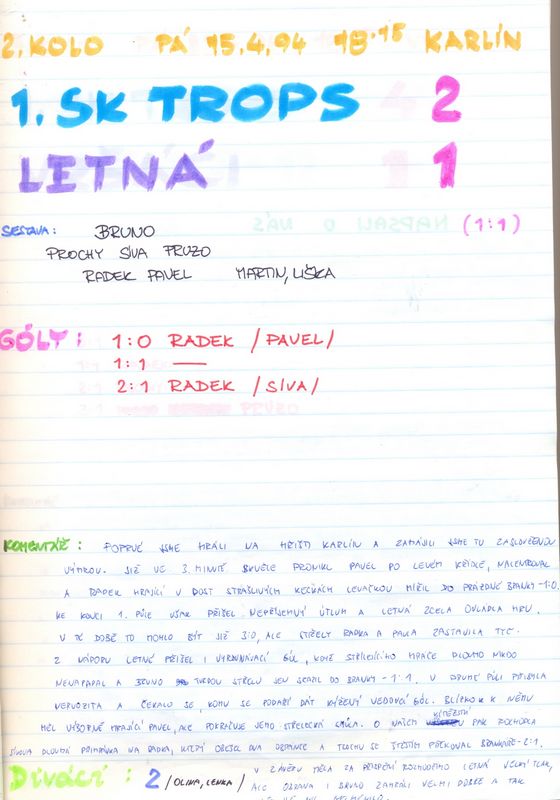 2. KOLO PÁ 15.4.94 18.15 KARLÍN
1. SK TROPS 2
LETNÁ 1
(1:1)
SESTAVA: BRUNO
PROCHY SÍVA PRUZO
RADEK PAVEL MARTIN, LIŠKA
GÓLY: 1:0 RADEK /PAVEL/
1:1 —
2:1 RADEK /SÍVA/
KOMENTÁŘ: POPRVÉ JSME HRÁLI NA HŘIŠTI KARLÍN A ZAHÁJILI JSME TU ZASLOUŽENOU
VÝHROU. JIŽ VE 3. MINUTĚ SKVĚLE PRONIKL PAVEL PO LEVÉM KŘÍDLE, NACENTROVAL
A RADEK HRAJÍCÍ V DOST STRAŠLIVÝCH KECKÁCH LEVAČKOU MÍŘIL DO PRÁZDNÉ BRANKY - 1:0.
KE KONCI 1. PŮLE VŠAK PŘIŠEL NEPŘÍJEMNÝ ÚTLUM A LETNÁ ZCELA OVLÁDLA HRU.
V TÉ DOBĚ TO MOHLO BÝT JIŽ 3:0, ALE STŘELY RADKA A PAVLA ZASTAVILA TYČ.
Z NÁPORU LETNÉ PŘIŠEL I VYROVNÁVACÍ GÓL, KDYŽ STŘÍLEJÍCÍHO HRÁČE DLOUHO NIKDO
NENAPADAL A BRUNO TVRDOU STŘELU JEN SRAZIL DO BRANKY - 1:1. V DRUHÉ PŮLI PŘIBYLA
NERVOZITA A ČEKALO SE, KOMU SE PODAŘÍ DÁT KÝŽENÝ VEDOUCÍ GÓL. BLÍZKO K NĚMU
MĚL VÝBORNĚ HRAJÍCÍ PAVEL, ALE POKRAČUJE JEHO STŘELECKÁ SMŮLA. O NAŠEM VÍTĚZSTVÍ PAK ROZHODLA
SÍVOVA DLOUHÁ PŘIHRÁVKA NA RADKA, KTERÝ OBEŠEL DVA OBRÁNCE A TROCHU SE ŠTĚSTÍM PŘEKONAL BRANKÁŘE - 2:1.
Diváci: 2 /OLINA, LENKA/ V ZÁVĚRU MĚLA ZA PŘISPĚNÍ ROZHODČÍHO LETNÁ VELKÝ TLAK,
ALE OBRANA I BRUNO ZAHRÁLI VELMI DOBŘE A TAK